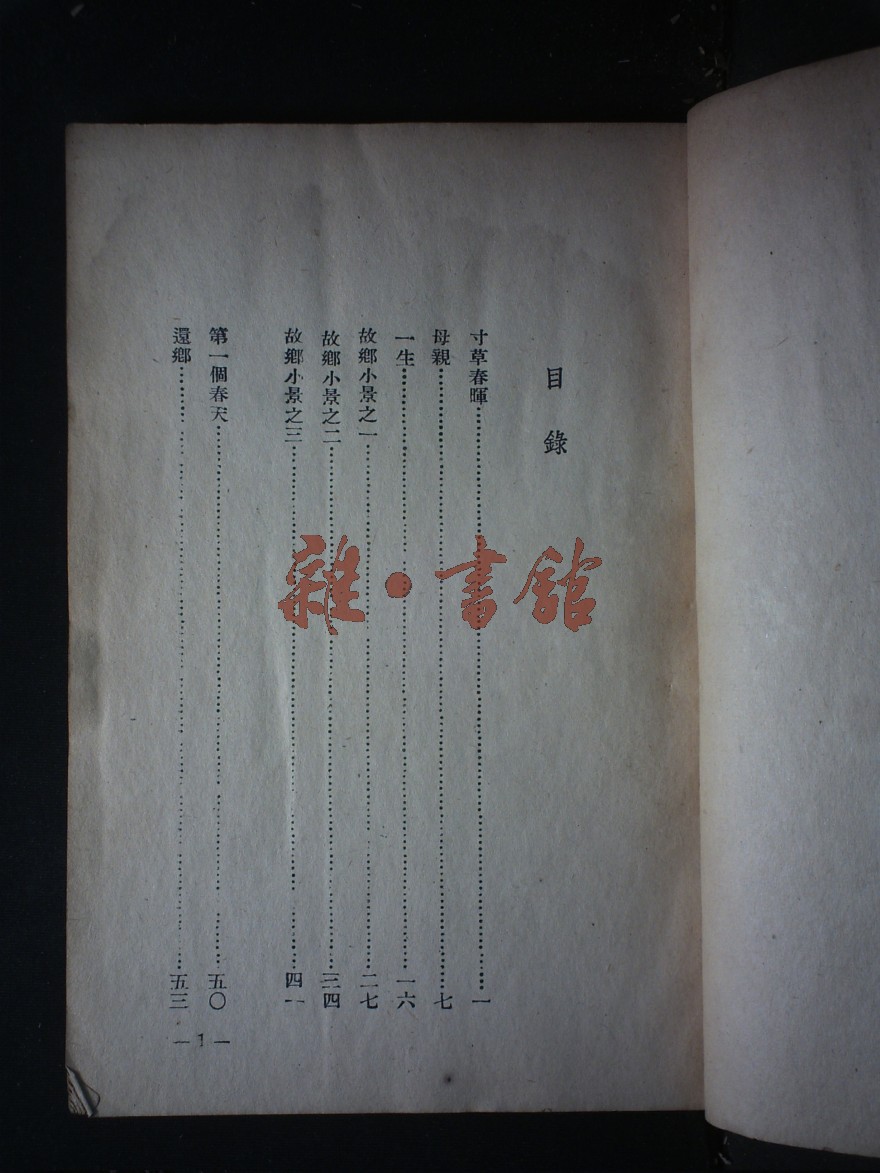 目錄
寸草春暉……一
母親……七
一生……一六
故鄉小景之一……二七
故鄉小景之二……三四
故鄉小景之三……四一
第一個春天……五〇
還鄉……五三
— 1 —
雜·書館